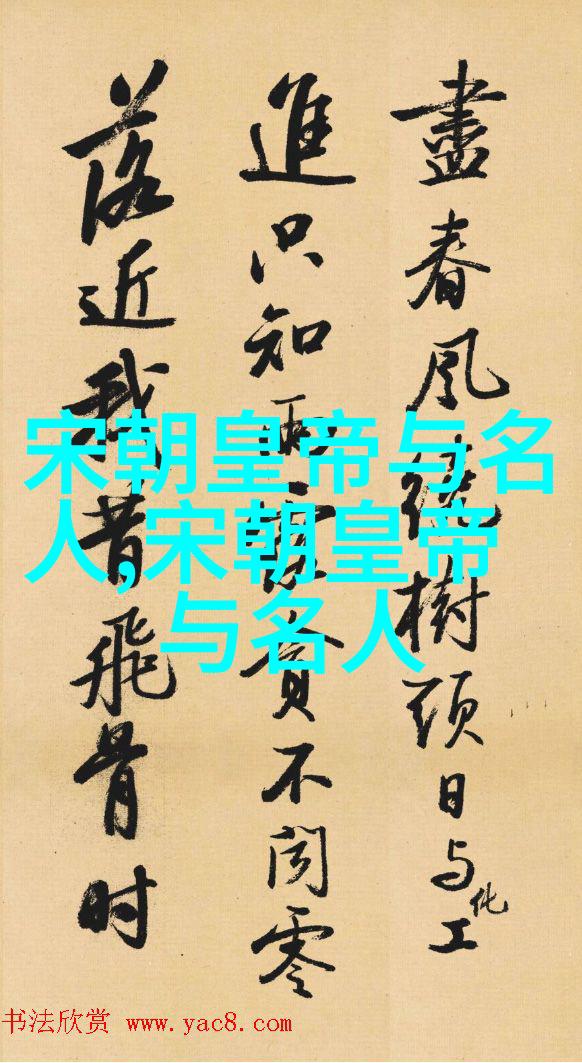 盡春風繞樹頭日与化工
進只知雨露貪不聞零
落近我昔飛骨时
宋朝皇帝与名
人,宋朝皇帝
与名人
书法欣赏 www.yac8.com